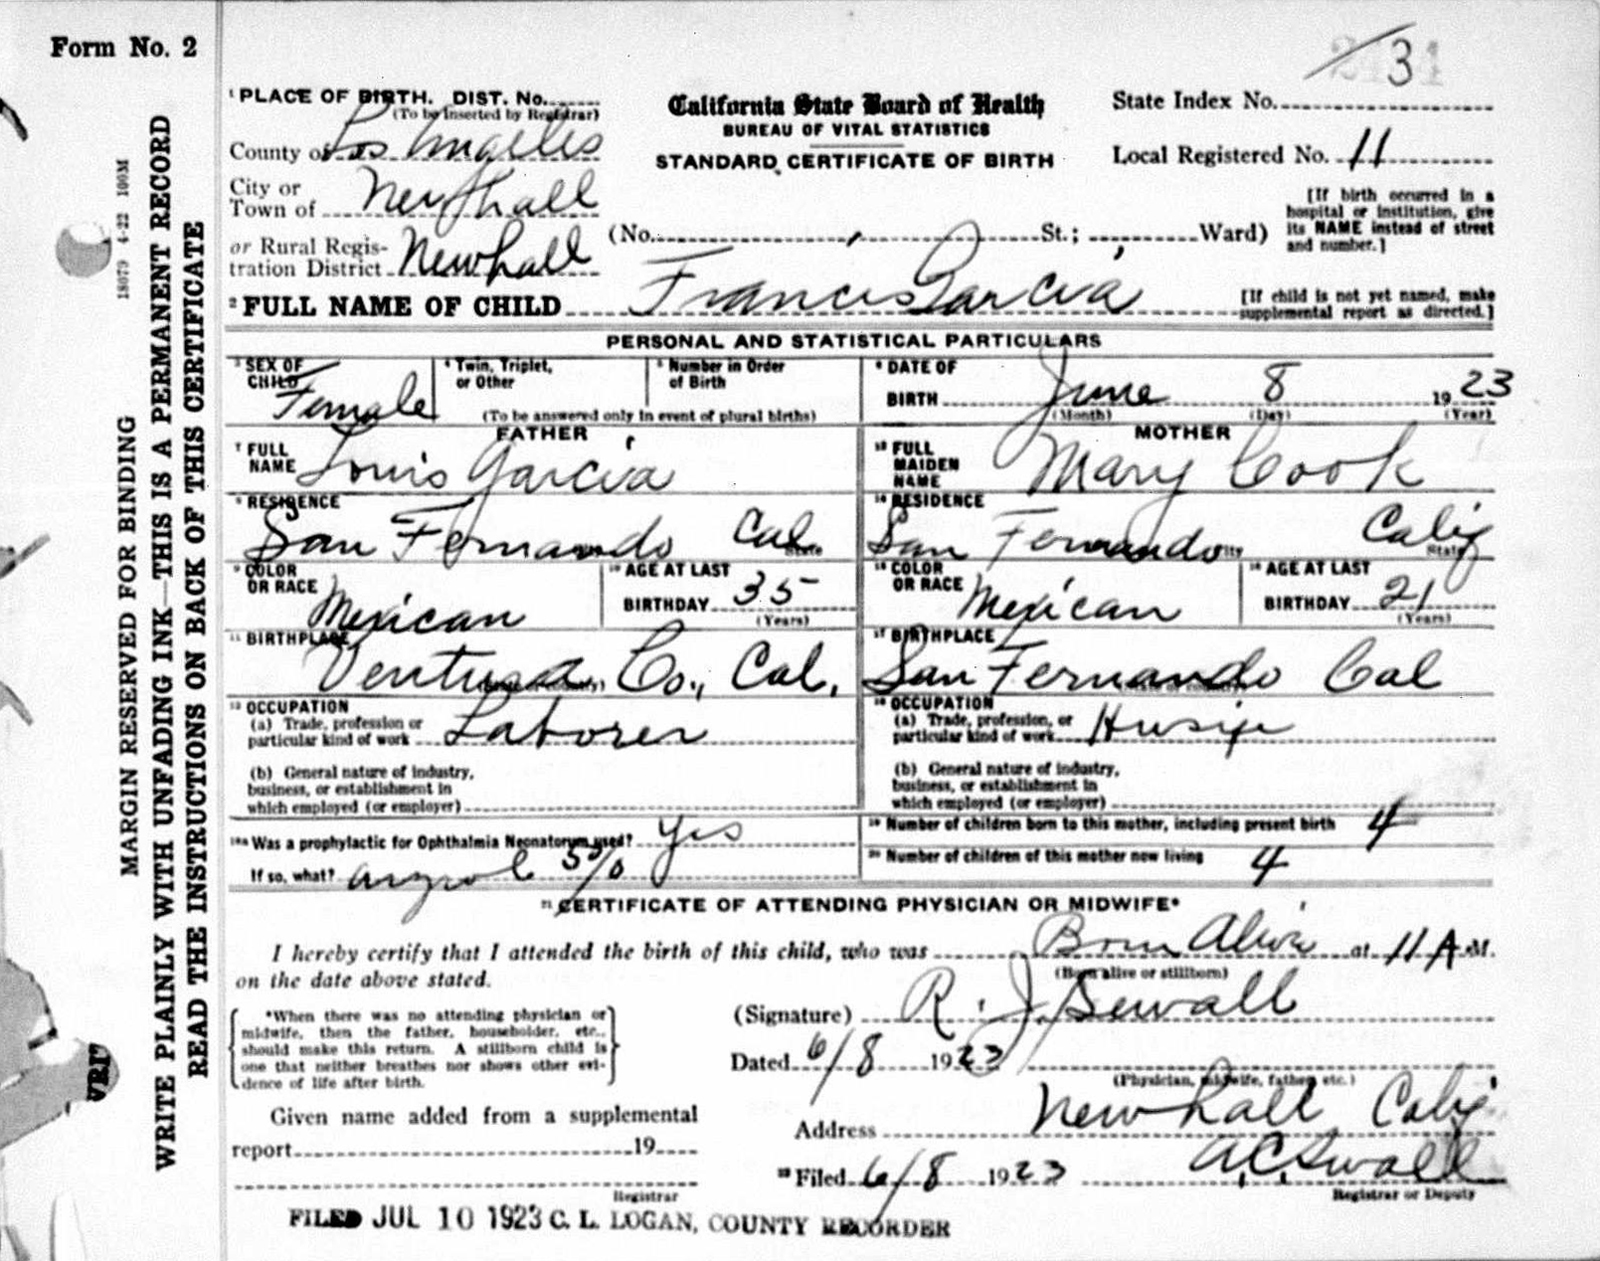 Form No. 2
3
1 PLACE OF BIRTH. DIST. No.
(To be inserted by Registrar)
County of Los Angeles
City or
Town of Newhall
or Rural Regis-
tration District Newhall
California State Board of Health
BUREAU OF VITAL STATISTICS
STANDARD CERTIFICATE OF BIRTH
State Index No.
Local Registered No. 11
[If birth occurred in a
hospital or institution, give
its NAME instead of street
and number.]
(No. St.; Ward)
2 FULL NAME OF CHILD Francis Garcia
[If child is not yet named, make
supplemental report as directed.]
PERSONAL AND STATISTICAL PARTICULARS
3 SEX OF
CHILD Female
4 Twin, Triplet,
or Other
5 Number in Order
of Birth
(To be answered only in event of plural births)
6 DATE OF
BIRTH June 8 1923
(Month) (Day) (Year)
FATHER
7 FULL
NAME Louis Garcia
8 RESIDENCE
San Fernando Cal
State
9 COLOR
OR RACE Mexican
10 AGE AT LAST
BIRTHDAY 35
(Years)
11 BIRTHPLACE
Ventura Co., Cal.
12 OCCUPATION
(a) Trade, profession or
particular kind of work Laborer
(b) General nature of industry,
business, or establishment in
which employed (or employer)
MOTHER
13 FULL
MAIDEN
NAME Mary Cook
14 RESIDENCE
San Fernando Calif
State
15 COLOR
OR RACE Mexican
16 AGE AT LAST
BIRTHDAY 21
(Years)
17 BIRTHPLACE
San Fernando Cal
18 OCCUPATION
(a) Trade, profession, or
particular kind of work
(b) General nature of industry,
business, or establishment in
which employed (or employer)
Was a prophylactic for Ophthalmia Neonatorum used? Yes
If so, what? argyrol 5%
19 Number of children born to this mother, including present birth 4
20 Number of children of this mother now living 4
21 CERTIFICATE OF ATTENDING PHYSICIAN OR MIDWIFE*
I hereby certify that I attended the birth of this child, who was Born Alive at 11 A M.
on the date above stated.
(Born alive or stillborn)
*When there was no attending physician or
midwife, then the father, householder, etc.,
should make this return. A stillborn child is
one that neither breathes nor shows other evi-
dence of life after birth.
(Signature) R. J. Sewall
Dated 6/8 1923
(Physician, midwife, father, etc.)
Given name added from a supplemental
report 19
Registrar
Address Newhall Calif
22 Filed 6/8 1923
Registrar or Deputy
FILED JUL 10 1923 C. L. LOGAN, COUNTY RECORDER
18079 4-22 100M
MARGIN RESERVED FOR BINDING
WRITE PLAINLY WITH UNFADING INK—THIS IS A PERMANENT RECORD
READ THE INSTRUCTIONS ON BACK OF THIS CERTIFICATE